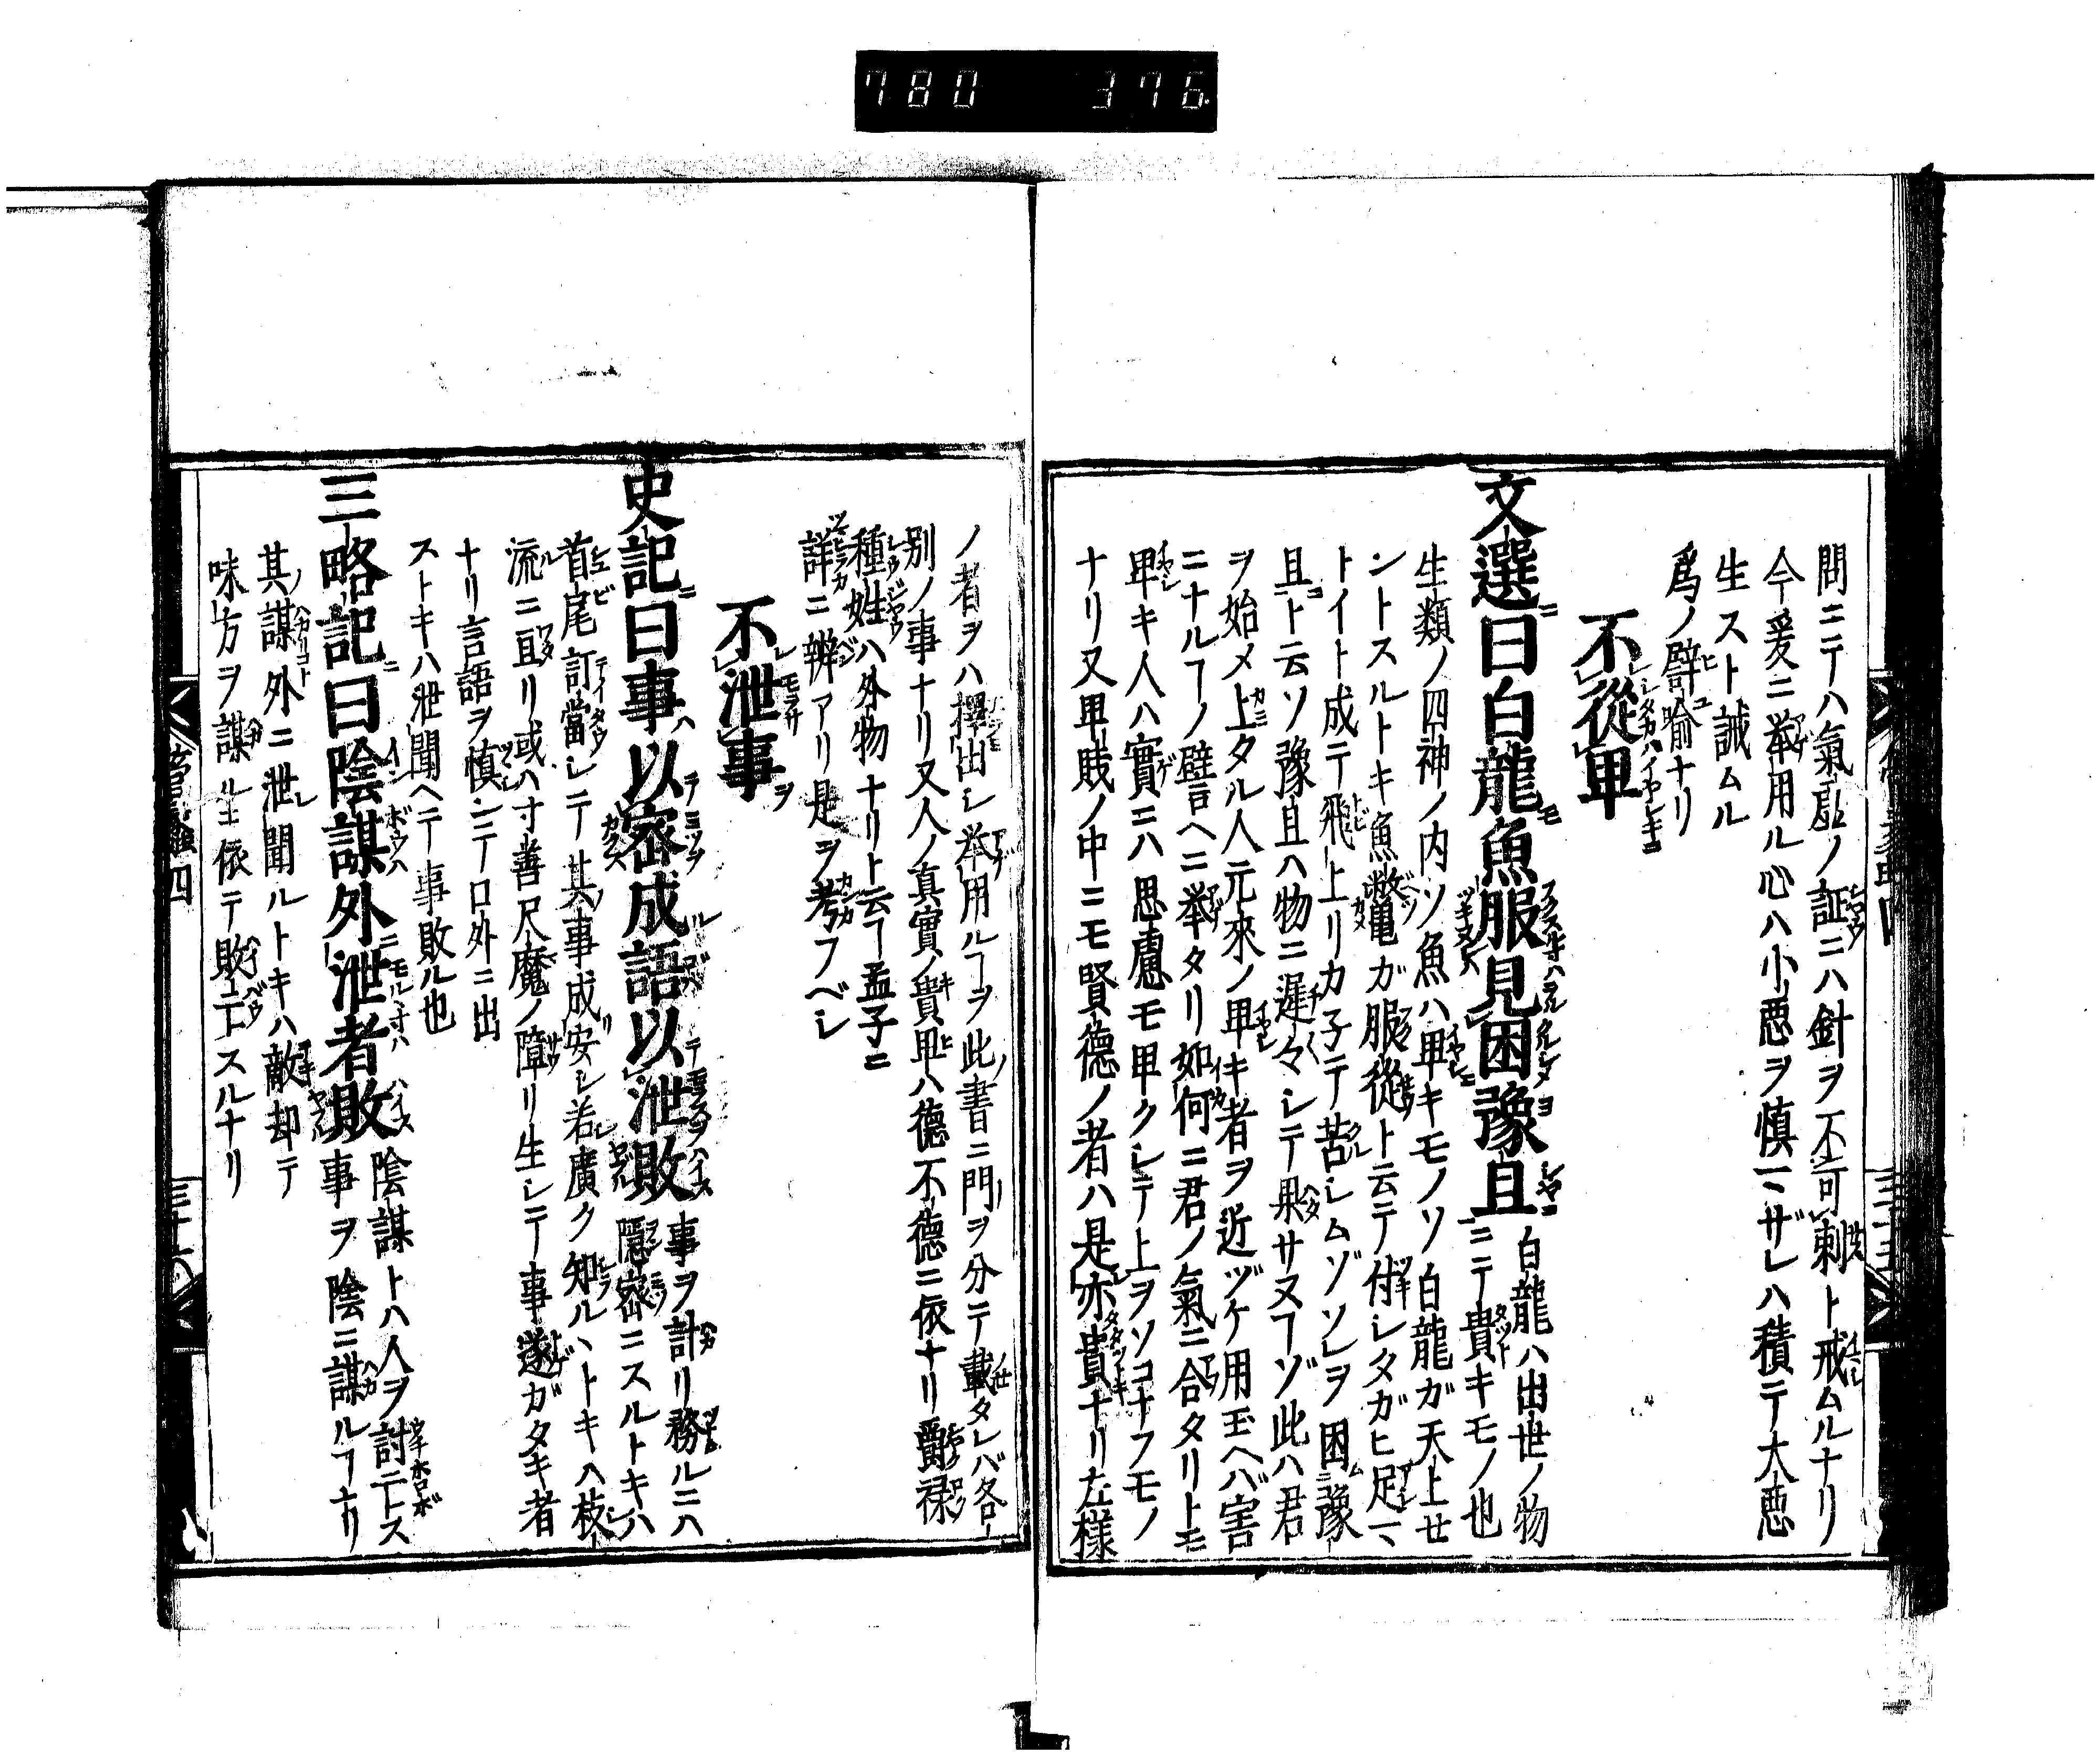 780 376
問ニテハ氣虚ノ証ニハ針ヲ不可刺ト戒ムルナリ
今爰ニ挙用ル心ハ小悪ヲ慎マザレハ積テ大悪
生スト誡ムル
爲ノ譬喩ナリ
不從卑
文選曰白龍魚服見困豫且
白龍ハ出世ノ物
ニテ貴キモノ也
生類ノ四神ノ内ソ魚ハ卑キモノソ白龍ガ天上セ
ントスルトキ魚鼈亀ガ服從ト云テ付シタガヒ足マ
トイト成テ飛上リカ子テ苦シムゾソレヲ困豫
且ト云ソ豫且ハ物ニ遅々シテ果サヌヿゾ此ハ君
ヲ始メ上タル人元來ノ卑キ者ヲ近ヅケ用玉ヘバ害
ニナルヿノ譬ヘニ挙タリ如何ニ君ノ氣ニ合タリトモ
卑キ人ハ實ニハ思慮モ卑クシテ上ヲソコナフモノ
ナリ又卑賎ノ中ニモ賢德ノ者ハ是亦貴ナリ左様
ノ者ヲハ擇出シ挙用ルヿヲ此書ニ門ヲ分テ載タレバ各
別ノ事ナリ又人ノ真實ノ貴卑ハ德不德ニ依ナリ爵禄
種姓ハ外物ナリト云ヿ孟子ニ
詳ニ辨アリ是ヲ考フベシ
不泄事
史記曰事以密成語以泄敗
事ヲ計リ務ルニハ
隱密ニスルトキハ
首尾訂當シテ其事成安シ若廣ク知ルヽトキハ枝
流ニ亘リ或ハ寸善尺魔ノ障リ生シテ事遂ガタキ者
ナリ言語ヲ慎ンテ口外ニ出
ストキハ泄聞ヘテ事敗ル也
三略記曰陰謀外泄者敗
陰謀トハ人ヲ討ニトス
事ヲ陰ニ謀ルヿナリ
其謀外ニ泄聞ルトキハ敵却テ
味方ヲ謀ルニ依テ敗亡スルナリ
四
三十六